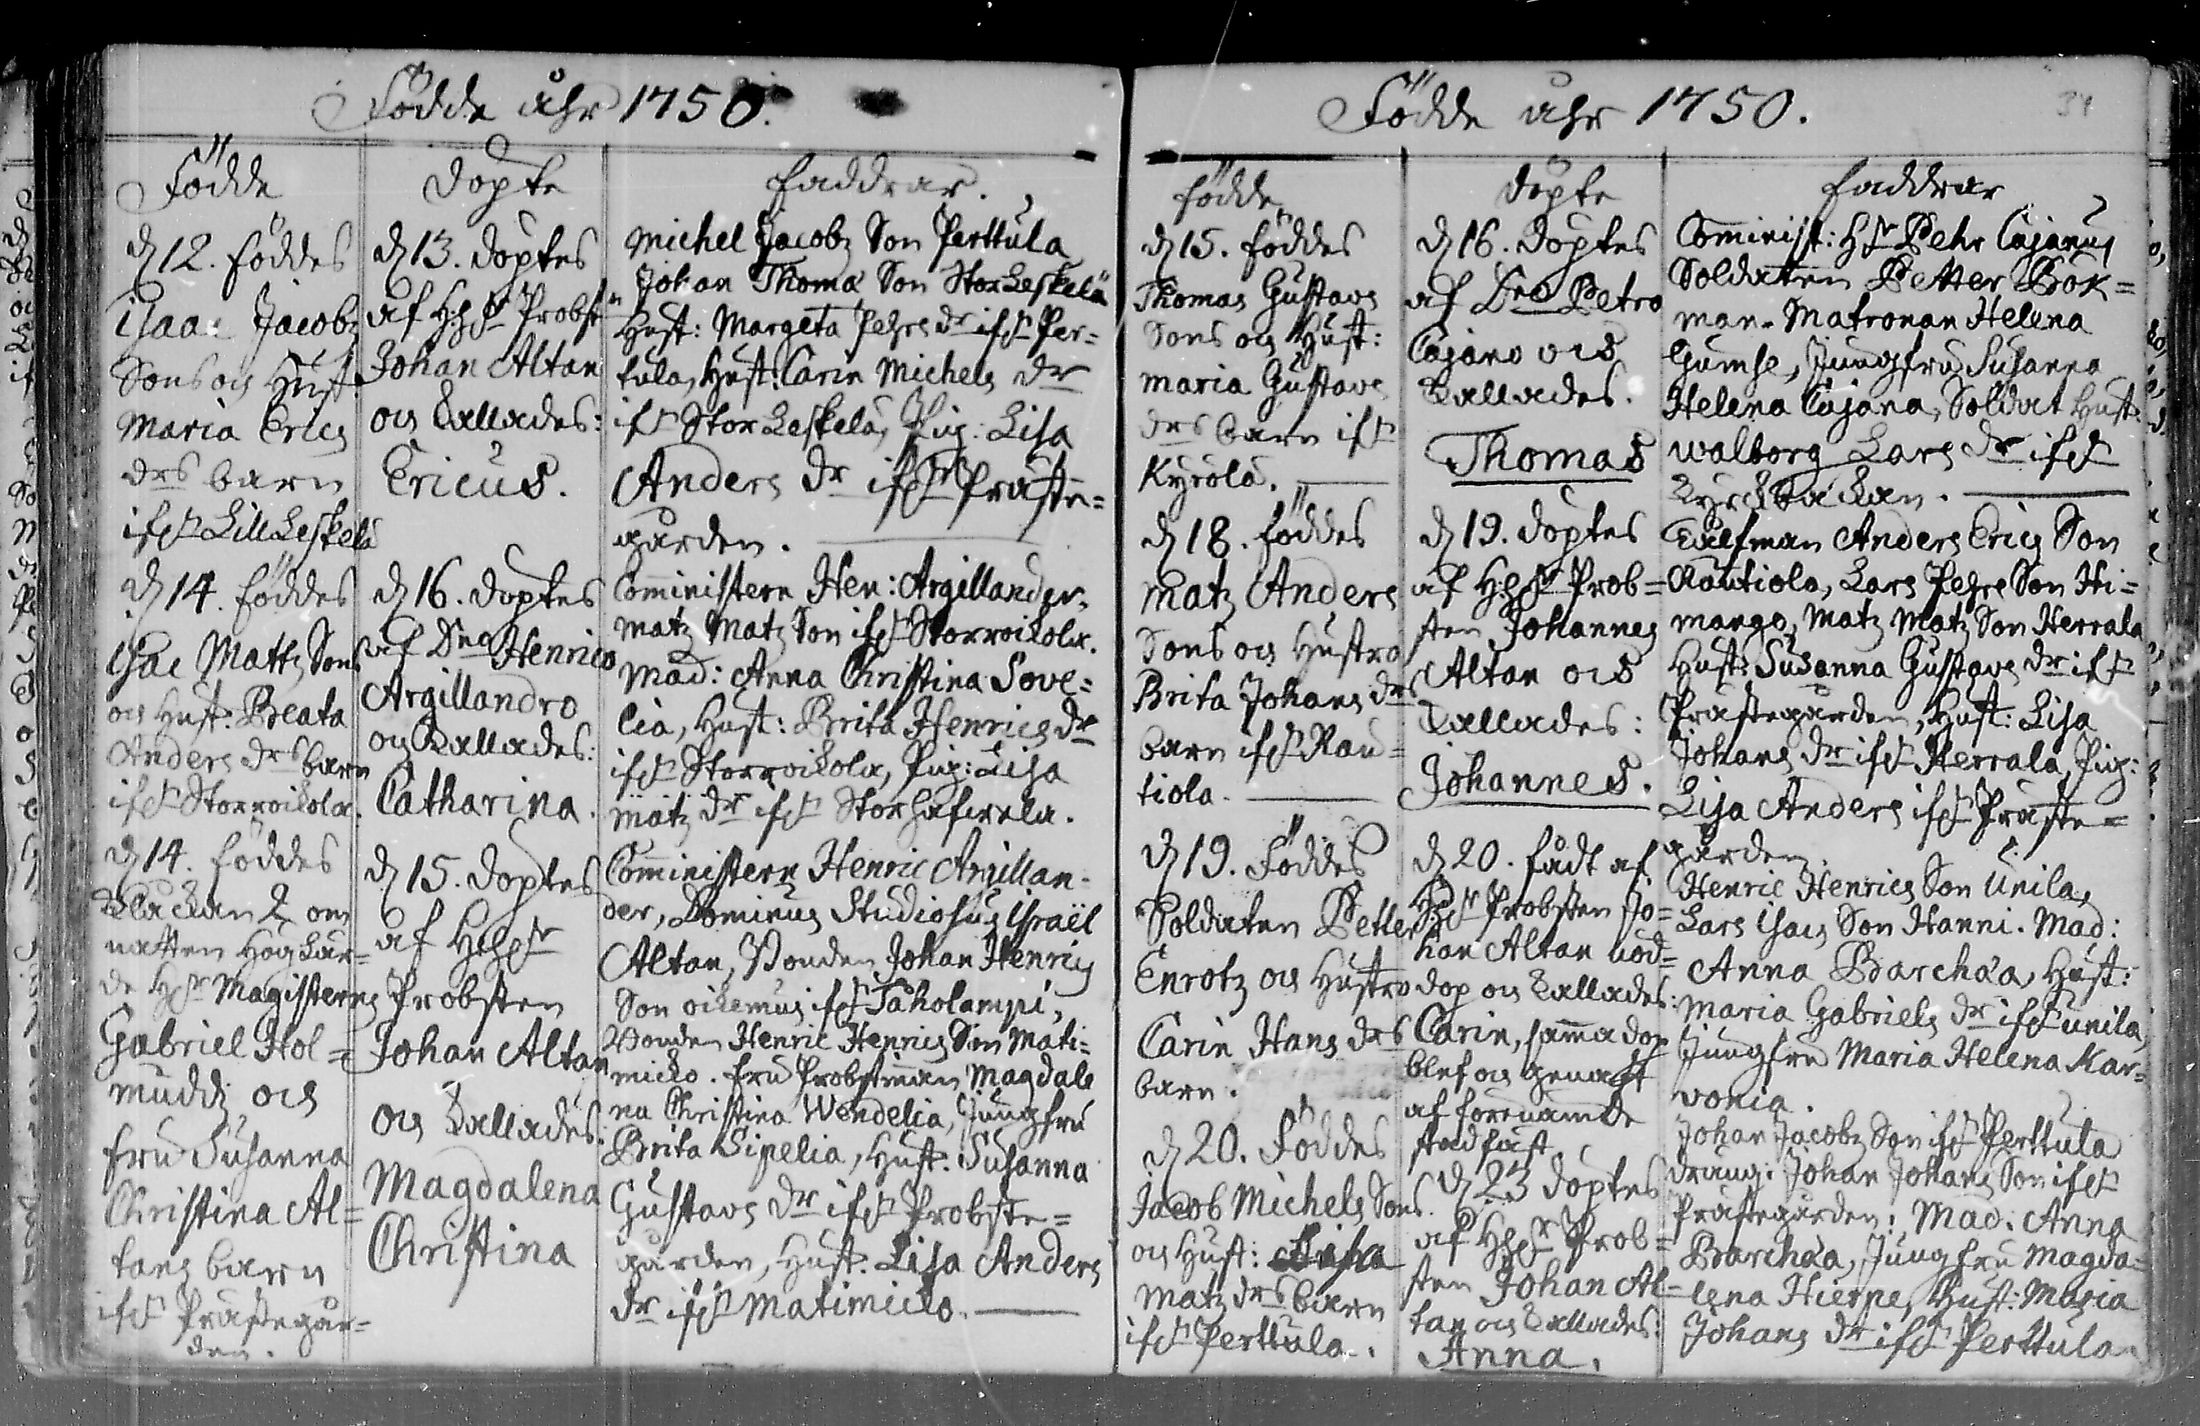 Födde åhr 1750.
Födde
Döpte
Faddrar.
d 12. föddes
Isaac Jacobz
Sons och Hust:
Maria Erics
drs barn
ifr Lill Leskelä
d 13. döptes
af HhHr Probsten
Johan Altan
och kallades:
Ericus.
Michel Jacobz Son Perttula
Johan Thomæ Son StorLeskelä
Hust: Margeta Pehrs dr ifr Per=
tula, Hust: Carin Michels dr
ifr StorLeskelä, Pig: Lisa
Anders dr ifr Präste=
gården.
d 14. föddes
Isac Mattz Sons
och Hust: Beata
Anders drs barn
ifr Storroikola.
d 16. döptes
af Dno Henrico
Argillandro
och kallades:
Catharina.
Comministern Hen: Argillander,
Matz Matz Son ifr Storroikola.
Mad: Anna Christina Sove=
lia, Hust: Brita Henrics dr
ifr Storroikola, Pig: Lisa
Matz dr ifr
d 14. föddes
Klåckan 2 om
natten Höglär=
de Hr Magisterns
Gabriel Hol=
mudz och
Fru Susanna
Christina Al=
tans barn
ifr Prästegår=
den.
d 15. döptes
af HhHr
Probsten
Johan Altan
och kallades:
Magdalena
Christina
Comministern Henric Argillan=
der, Dominus Studiosus Israël
Altan, Bonden Johan Henrics
Son oikemus ifr Taholampi,
Bonden Henric Henrics Son Mati=
micko. Fru Probstinnan Magdale
na Christina Wendelia, Jungfru
Brita Sipelia, Hust: Susanna
Gustavs dr ifr Probste=
gården, Hust: Lisa Anders
dr ifr Matimicko.
Födde åhr 1750.
34
Födde
Döpte
Faddrar
d 15. föddes
Thomas Gustavs
Sons och Hust:
Maria Gustavs
drs barn ifr
Kyrölä.
d 16. döptes
af Dno Petro
Cajano och
kallades.
Thomas
Comminist: Hr Pehr Cajanus
Soldaten Petter Bök=
man. Matronan Helena
Gumse, Jungfru Susanna
Helena Cajana, Soldat Hust:
Walborg Lars dr ifr
Kyrckbackan.
d 18. föddes
Matz Anders
Sons och Hustro
Brita Johans drs
barn ifr Rau=
tiola.
d 19. döptes
af HhHr Prob=
sten Johannes
Altan och
kallades:
Johannes.
Anders Erics Son
Rautiola, Lars Pehrs Son Hi=
mango, Matz Matz Son Herrala
Hust: Susanna Gustavs dr ifr
Prästegården, Hust: Lisa
Johans dr ifr Herrala, Pig:
Lisa Anders ifr Präste=
gården.
d 19. Föddes
Soldaten Petter
Enrotz och Hustro
Carin Hans drs
barn.
d 20. fådt af
HhHr Probsten Jo=
han Altan nöd=
dop och kallades:
Carin, samma dop
blef och genast
af förenämde
stadfäst.
Henric Henrics Son Unila,
Lars Isacs Son Hanni. Mad:
Anna Barchæa, Hust:
Maria Gabriels dr ifr Unila,
Jungfru Maria Helena Kar=
vonia.
d 20. Föddes
Jacob Michels Sons
och Hust: Brita
Matz drs barn
ifr Perttula.
d 23 döptes
af HhHr Prob=
sten Johan Al=
tan och kallades:
Anna.
Johan Jacobz Son ifr Perttula
dräng: Johan Johans Son ifr
Prästegården. Mad: Anna
Barchæa, Jungfru Magda=
lena Hierpe, Hust: Maria
Johans dr ifr Perttula.